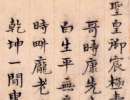 聖皇御宸極
哥時康
白生平無
時畔龐老
乾坤一閒